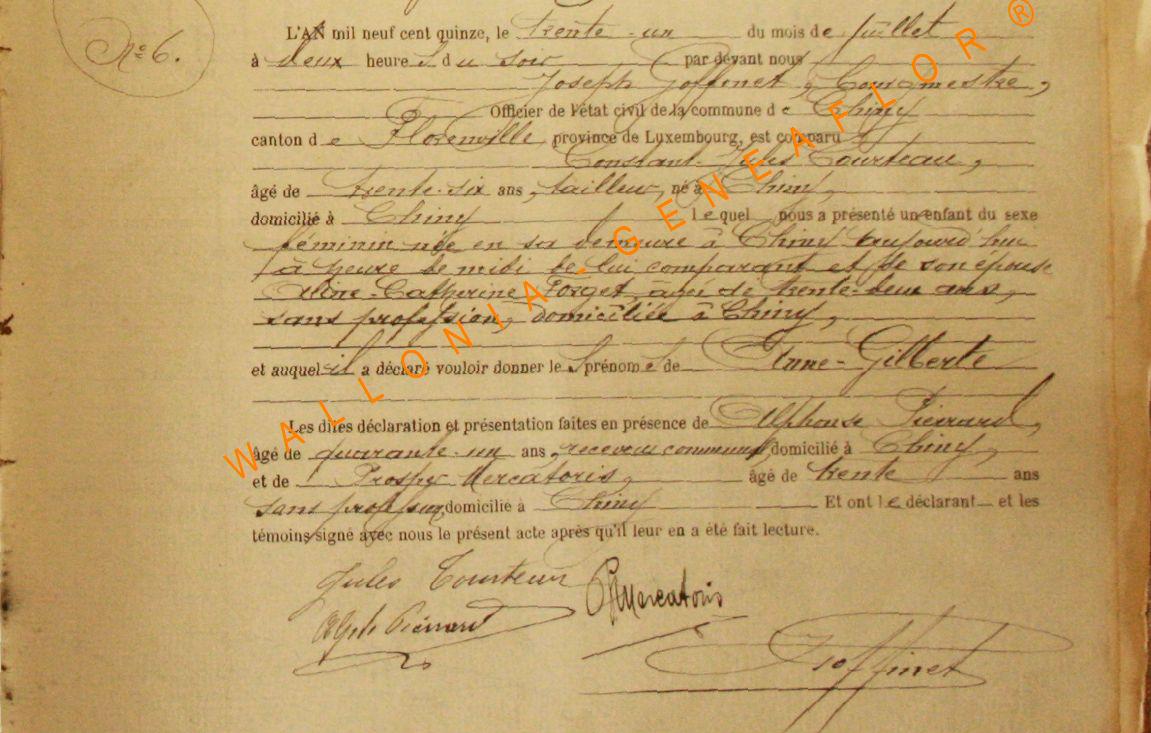 N° 6.
L'AN mil neuf cent quinze, le trente-un du mois de juillet
à deux heures du soir par devant nous
Joseph Goffinet, Bourgmestre,
Officier de l'état civil de la commune de Chiny
canton de Florenville, province de Luxembourg, est comparu
Constant-Jules Courteau,
âgé de trente-six ans, tailleur, né à Chiny,
domicilié à Chiny lequel nous a présenté un enfant du sexe
féminin née en sa demeure à Chiny aujourd'hui
à heure de midi de lui comparant et de son épouse
Aline-Catherine Forget, âgée de trente-deux ans,
sans profession, domiciliée à Chiny,
et auquel il a déclaré vouloir donner les prénoms de Anne-Gilberte
Les dites déclaration et présentation faites en présence de Alphonse Pierrard,
âgé de quarante-un ans, receveur communal, domicilié à Chiny,
et de Prosper Mercatoris, âgé de trente ans
sans profession, domicilié à Chiny Et ont le déclarant et les
témoins signé avec nous le présent acte après qu'il leur en a été fait lecture.
Jules
P Mercatoris
Alph Pierrard
J Goffinet
WALLONIA-GENEAFLOR®